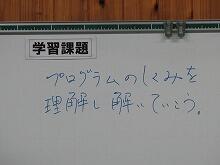 学習課題
プログラムのしくみを
理解し解いていこう。